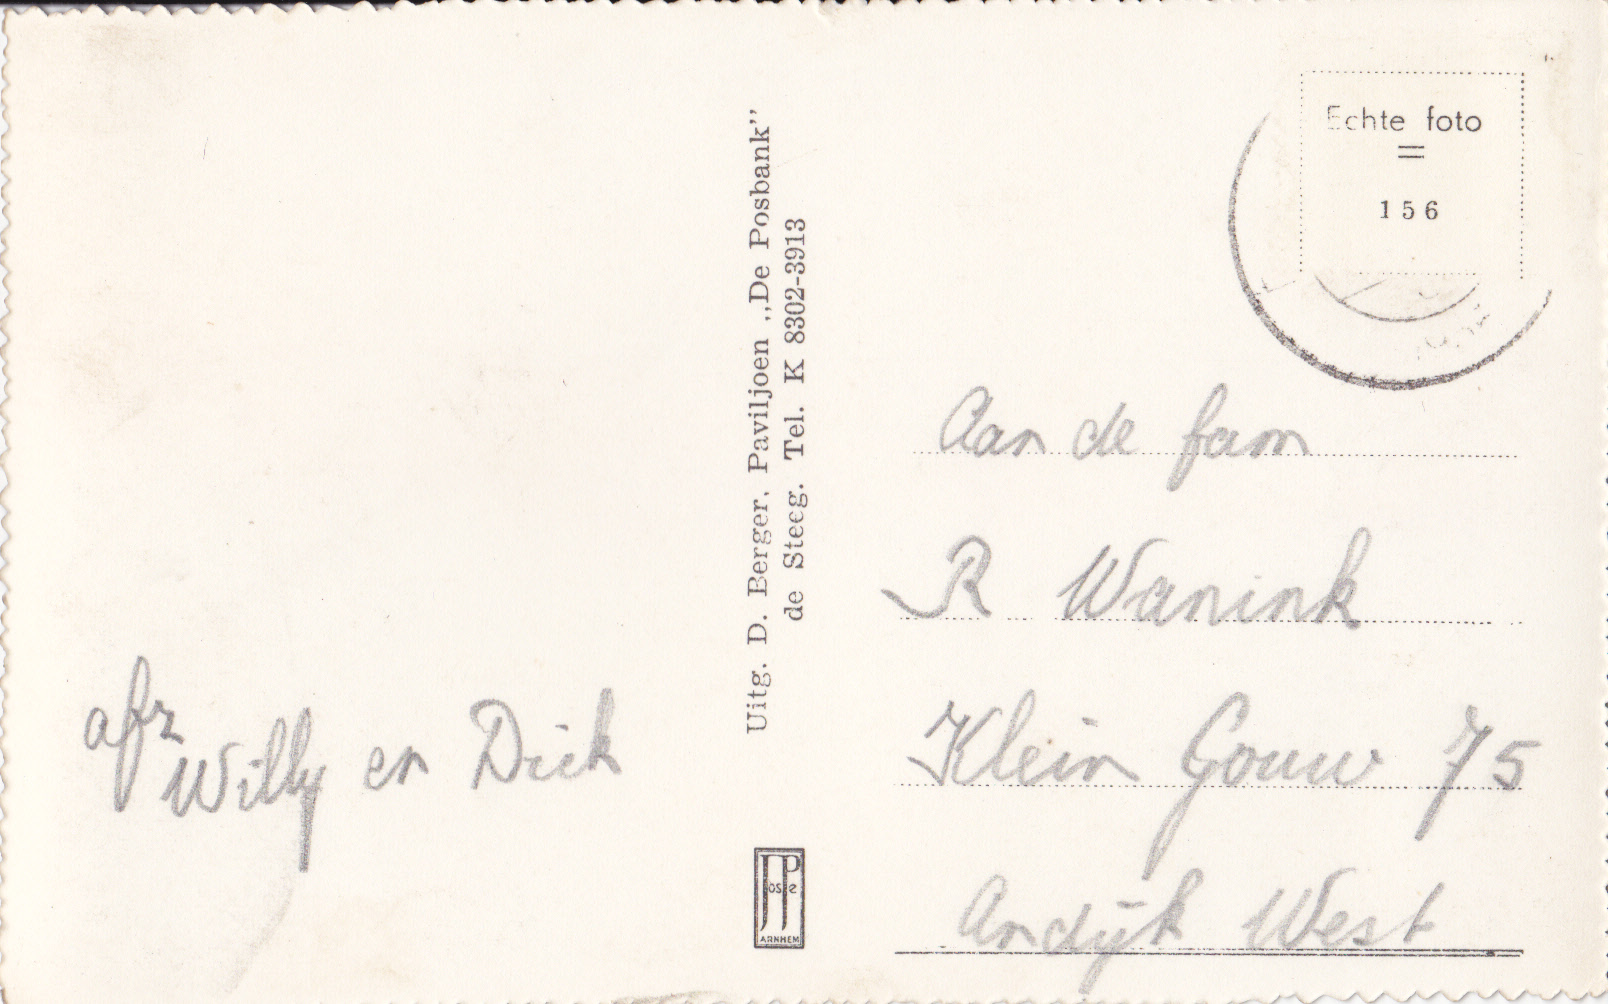 afz
Willy en Dick
Uitg. D. Berger, Paviljoen „De Posbank”
de Steeg. Tel. K 8302-3913
ARNHEM
Echte foto
=
156
Aan de fam
R Wanink
Klein Gouw 75
Andijk West